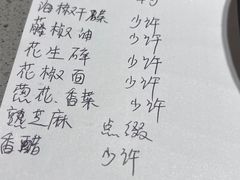 泊椒干碟 少许
藤椒油 少许
花生碎 少许
花椒面 少许
葱花、香菜 少许
熟芝麻 点缀
香醋 少许